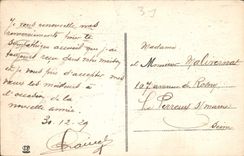 Je vous renouvelle mes
remerciements pour le
sympathique accueil que j'ai
toujours reçu dans votre
et je vous prie d'accepter
mes vœux les meilleurs à
l'occasion de la
nouvelle année.
30.12.29
35
Madame
et Monsieur Malivernat
107 avenue de Rosny
Le Perreux s/ marne
Seine